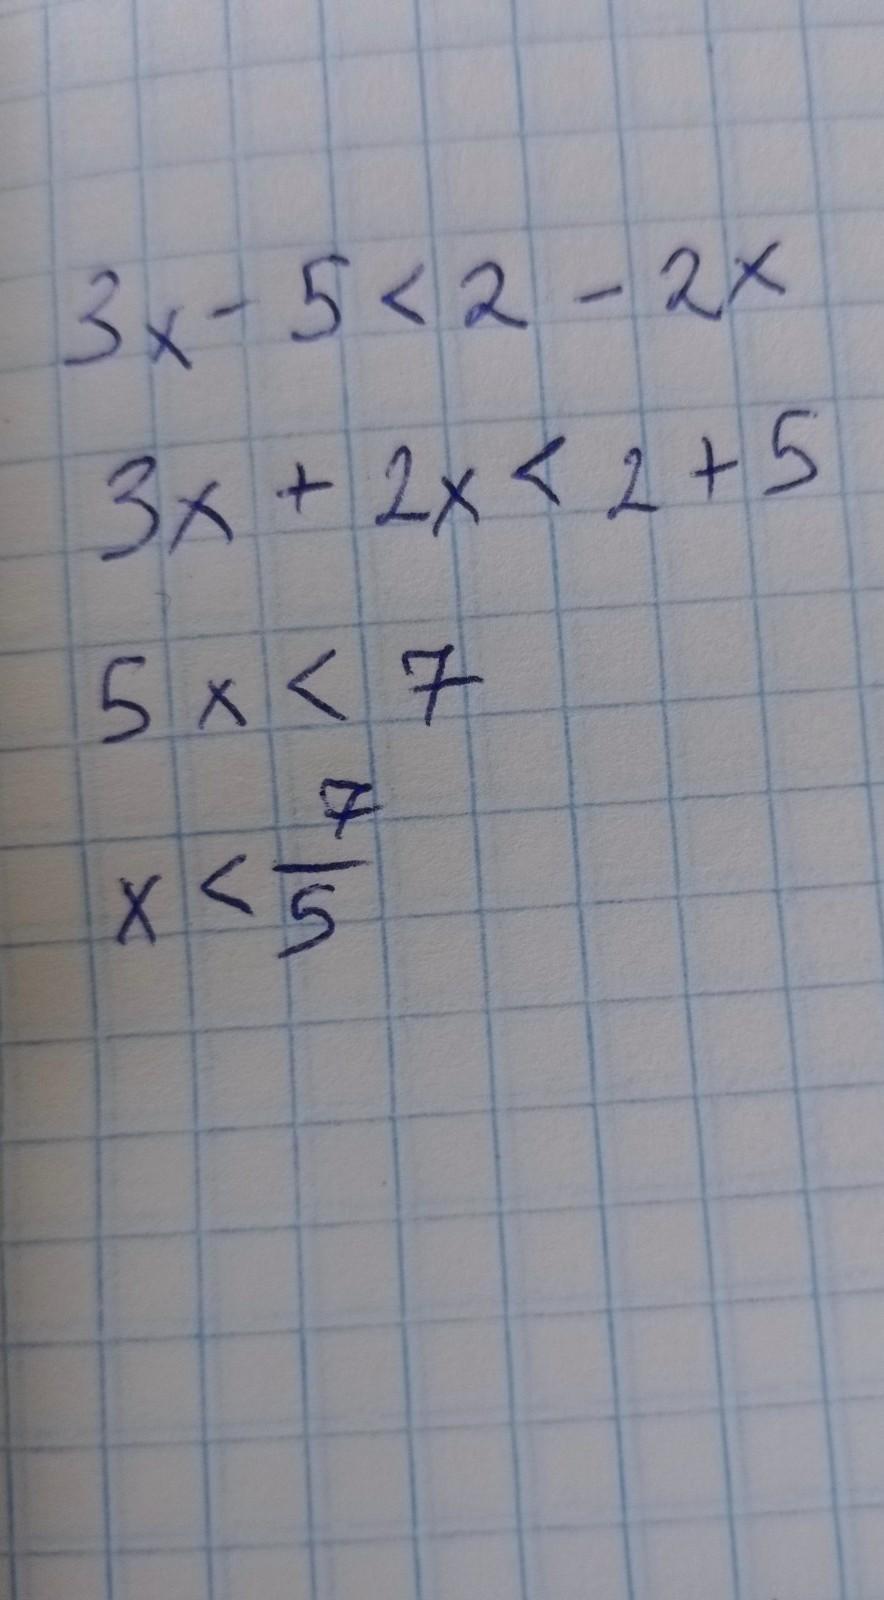 3x - 5 < 2 - 2x
3x + 2x < 2 + 5
5x < 7
x < 7/5